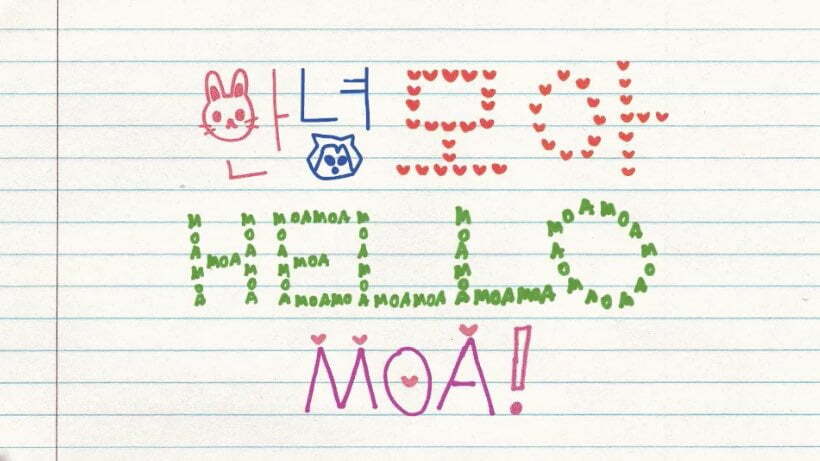 안녕 모아
HELLO
MOA!